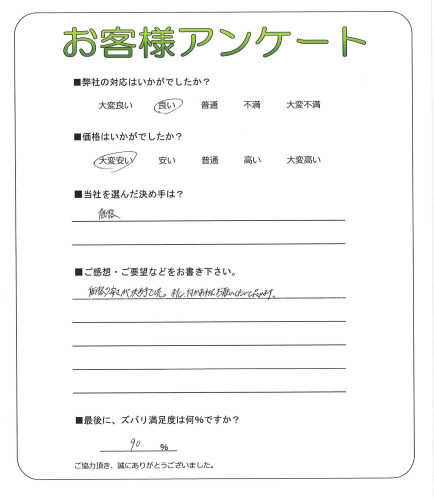 お客様アンケート
■弊社の対応はいかがでしたか？
大変良い 良い 普通 不満 大変不満
■価格はいかがでしたか？
大変安い 安い 普通 高い 大変高い
■当社を選んだ決め手は？
価格
■ご感想・ご要望などをお書き下さい。
価格の安さが決め手でした。また、何かあればお願いしたいと思います。
■最後に、ズバリ満足度は何%ですか？
90 %
ご協力頂き、誠にありがとうございました。